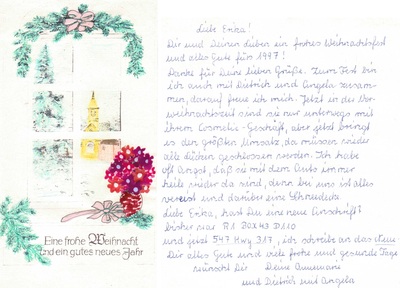 Eine frohe Weihnacht
und ein gutes neues Jahr
Liebe Erika!
Dir und Deinen Lieben ein frohes Weihnachtsfest
und alles Gute für 1997!
Danke für Deine lieben Grüße. Zum Fest bin
ich auch mit Dietrich und Angela zusam-
men, darauf freue ich mich. Jetzt in der Vor-
weihnachtszeit sind sie nur unterwegs mit
ihrem Cosmetic-Geschäft, aber jetzt bringt
es den größten Umsatz, da müssen wieder
alle Lücken geschlossen werden. Ich habe
oft Angst, daß sie mit dem Auto immer
heile wieder da sind, denn bei uns ist alles
vereist und darüber eine Schneedecke
Liebe Erika, hast Du eine neue Einschrift?
bisher war R.1 Box 43 D.110
und jetzt 547 Hwy 317, ich schreibe an das
Dir alles Gute und viele frohe und gesunde Tage
wünscht Dir Deine Annemarie
und Dietrich und Angela